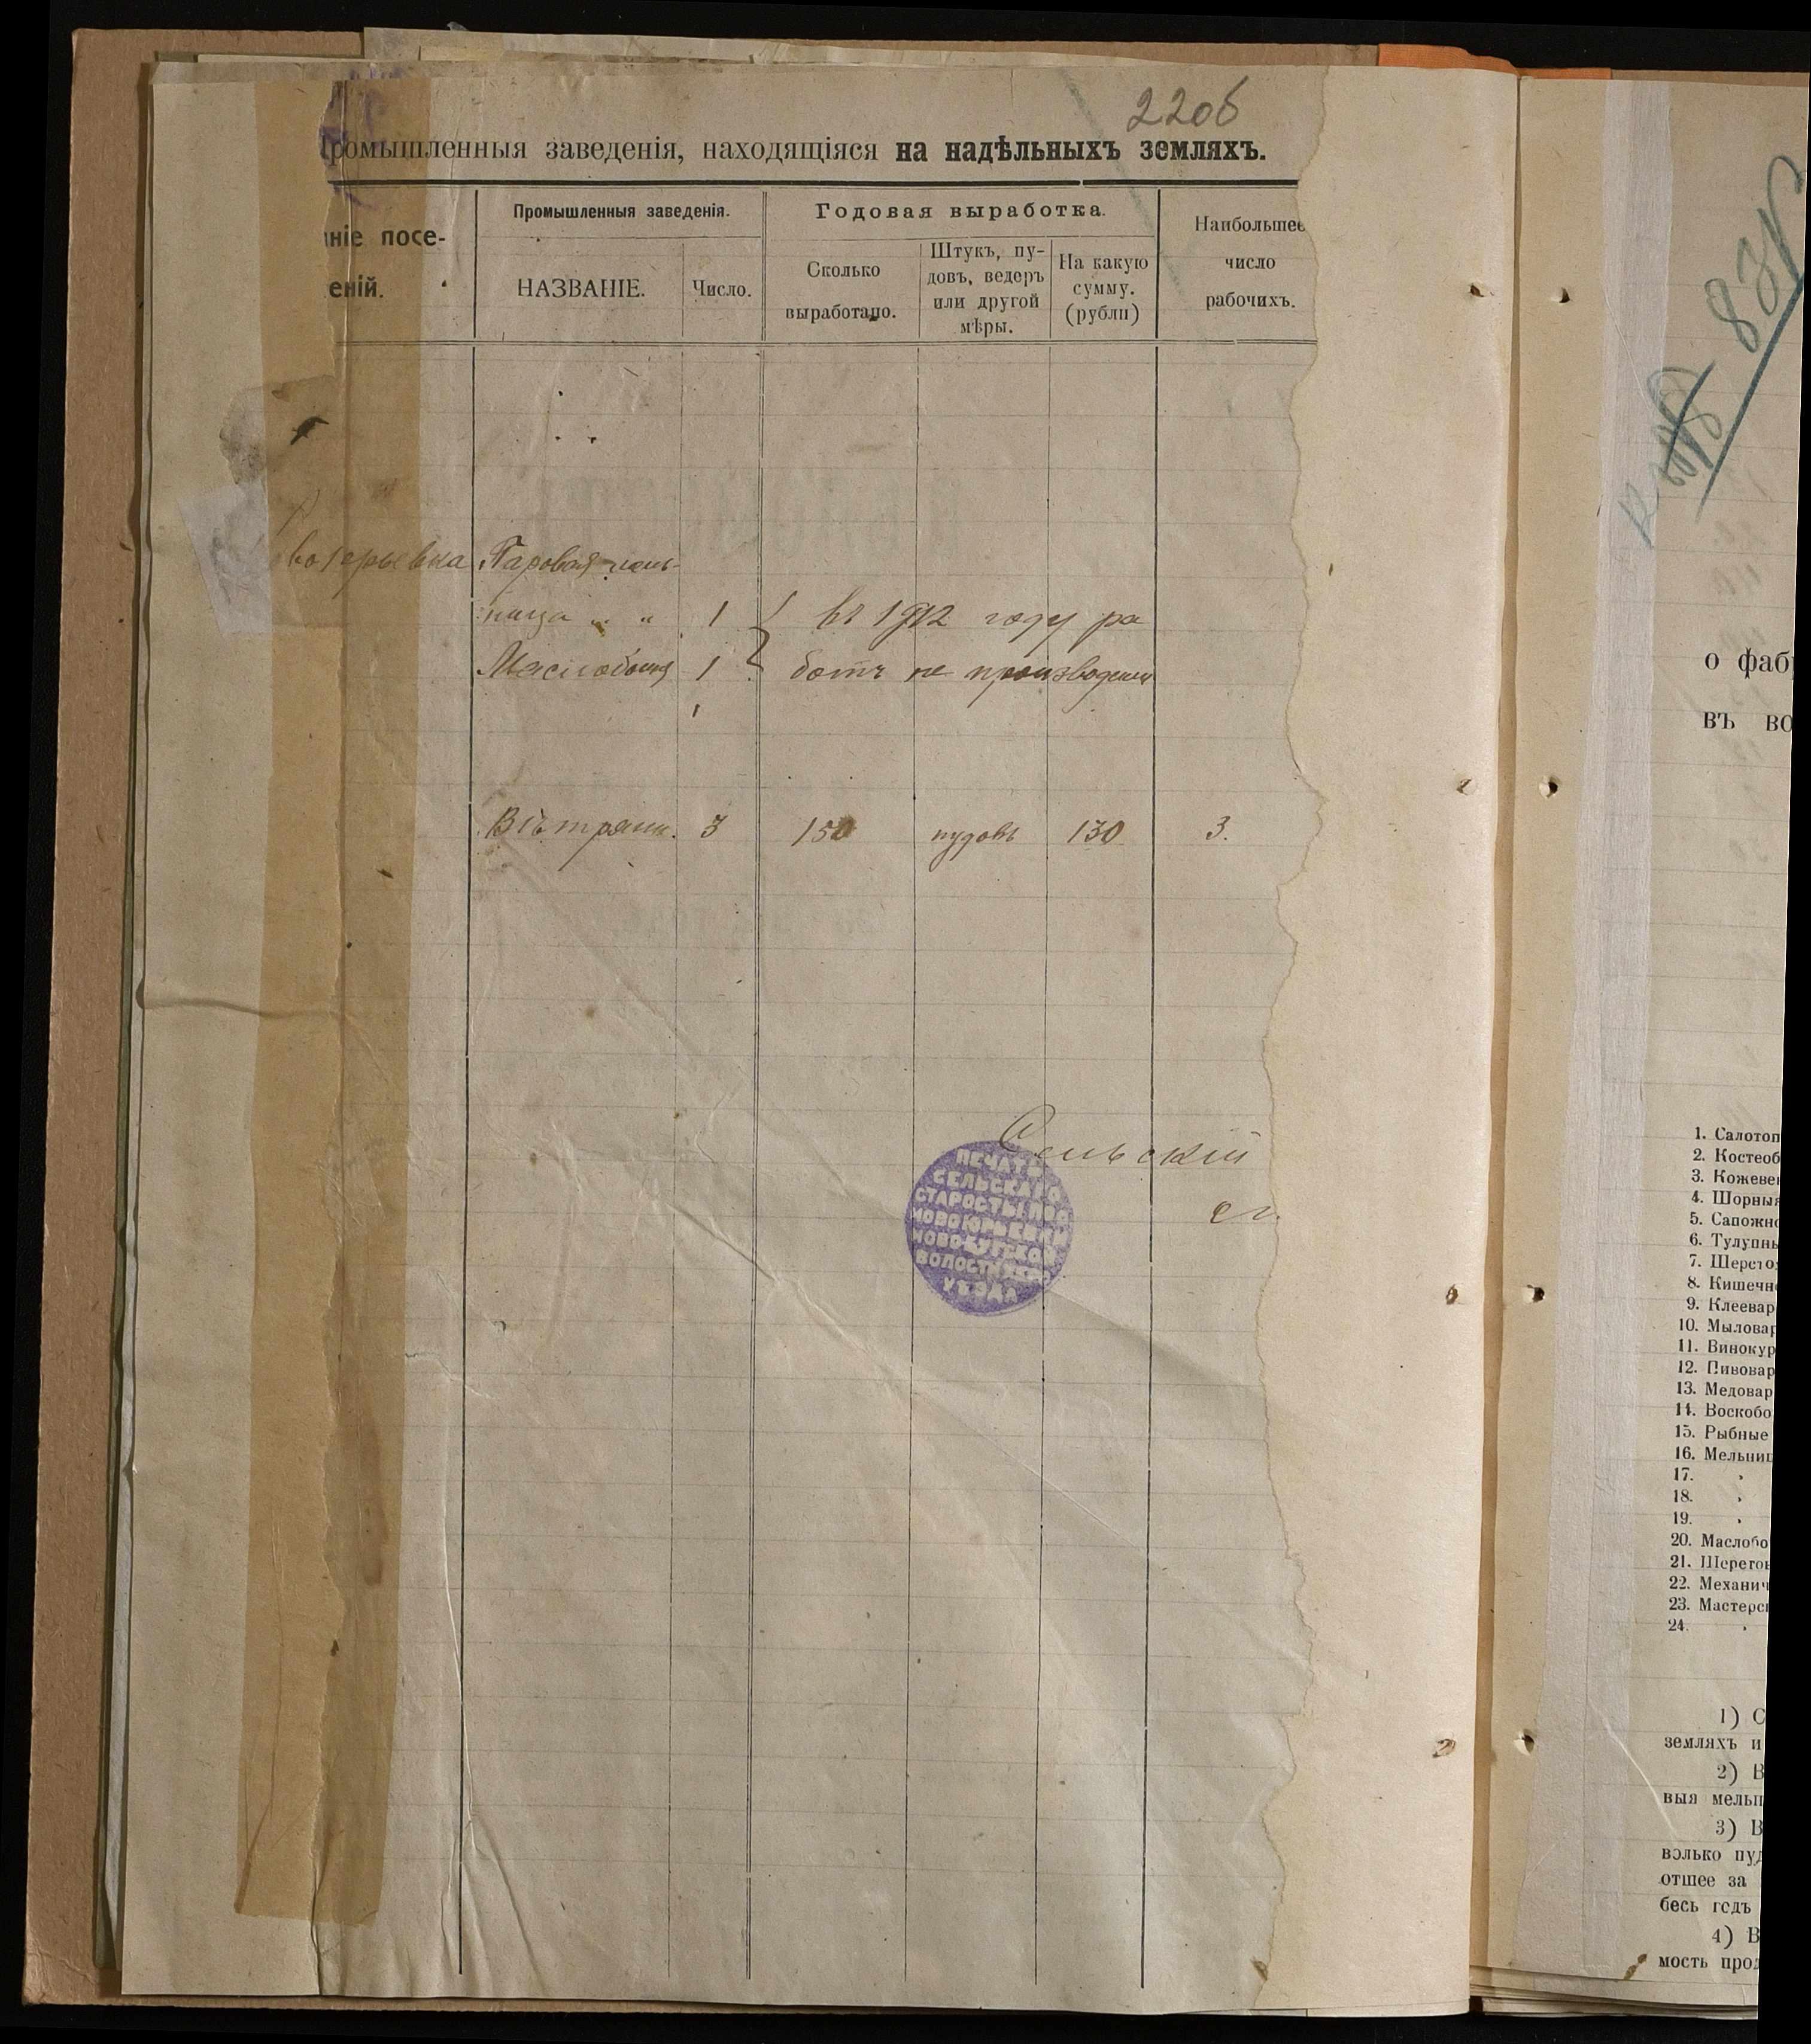 220б
Промышленныя заведенія, находящіяся на надѣльныхъ земляхъ.
ніе посе-
еній.
Промышленныя заведенія.
НАЗВАНІЕ.
Число.
Годовая выработка.
Сколько
выработано.
Штукъ, пу-
довъ, ведеръ
или другой
мѣры.
На какую
сумму.
(рубли)
Наибольшее
число
рабочихъ.
Паровая мель-
ница „ „ 1 въ 1912 году ра
Маслобойня 1 ботъ не производили
Вѣтрянн. 3 150 пудовъ 130 3.
Сельскій
ст
ПЕЧАТЬ
СЕЛЬСКАГО
СТАРОСТЫ ПОС
НОВОЮРЬЕВКИ
НОВОБУГСКОЙ
ВОЛОСТИ
УѢЗДА
831
о фаб
въ во
1. Салотоп
2. Костеоб
3. Кожевен
4. Шорныя
5. Сапожно
6. Тулупны
7. Шерсто
8. Кишечн
9. Клеевар
10. Мыловар
11. Винокур
12. Пивовар
13. Медовар
14. Воскобо
15. Рыбные
16. Мельниц
17. „
18. „
19. „
20. Маслобо
21. Шерстоб
22. Механич
23. Мастерс
24. „
1) С
земляхъ и
2) В
выя мельн
3) В
колько пуд
отшее за
весь годъ
4) В
мость прод